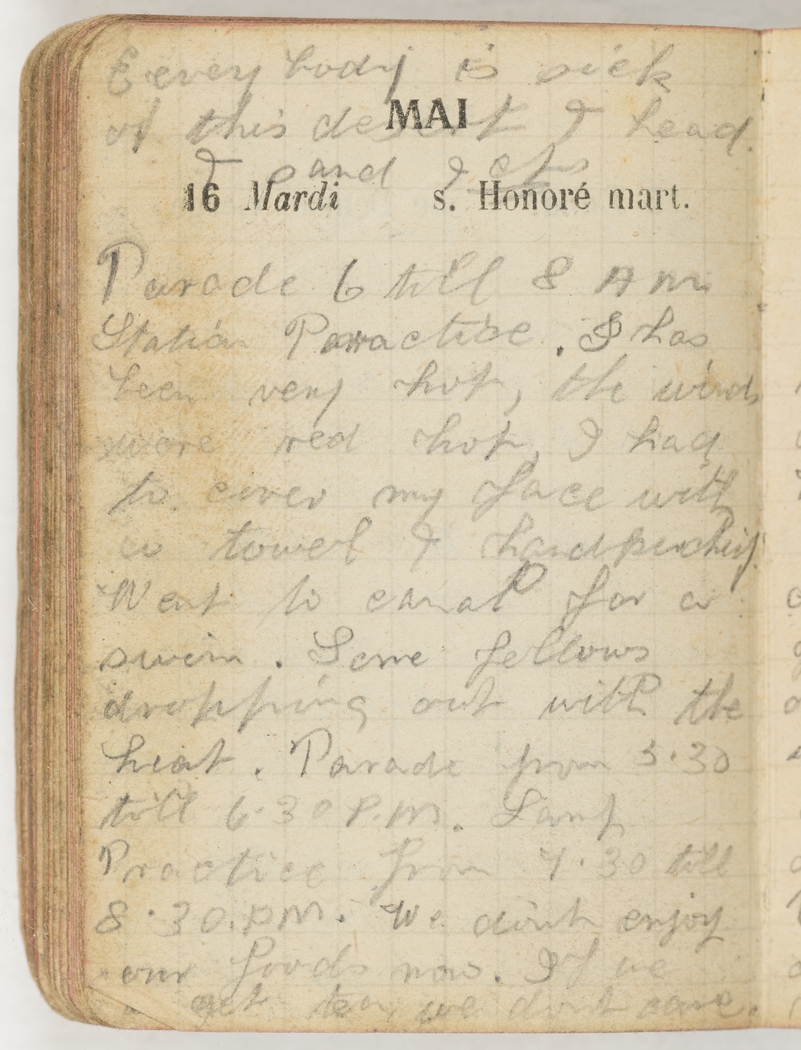 Everybody is sick
of this desert & head
MAI
& sand & etc
16 Mardi s. Honoré mart.
Parade 6 till 8 A M.
Station Practice. I has
been very hot, the winds
were red hot, I had
to cover my face with
a towel & handkerchief.
Went to canal for a
swim. Some fellows
dropping out with the
heat. Parade from 5.30
till 6.30 P.M. Lamp
Practice from 7.30 till
8.30. P.M. We dont enjoy
our foods now. If we
get tea, we dont care.